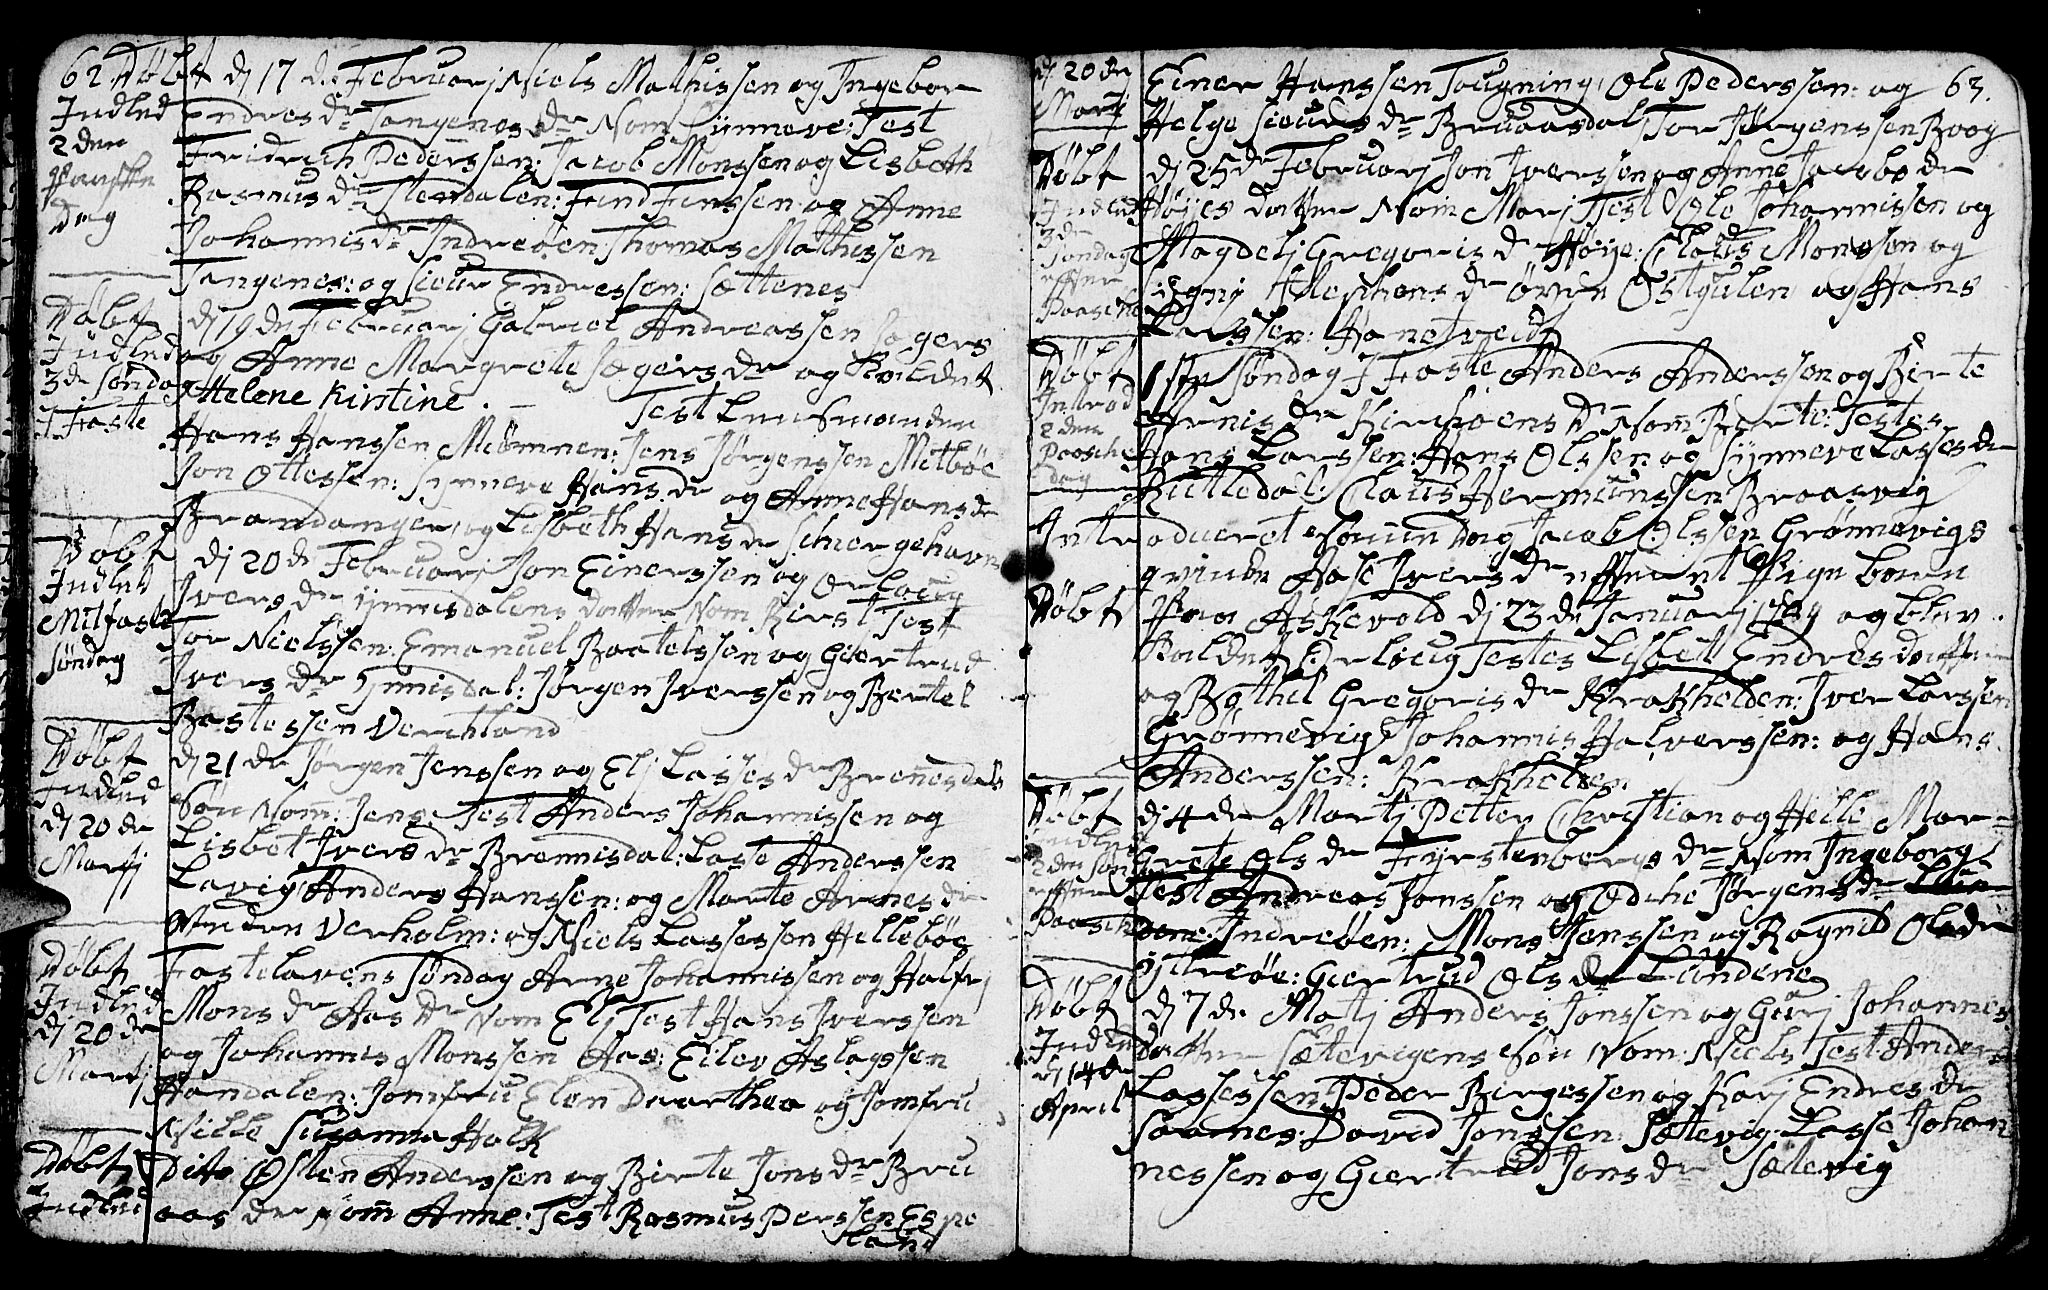 62. Døbt
Indled
2den
Paaske
Dag
dj 17 de Februarj Niels Mathissen og Ingebor
Endres dr Tangenes dr Nom Synneve: Test
Fridrich Pederssen: Jacob Monssen og Lisbeth
Rasmus dr Stendalen: Find Finssen og Anne
Johannis dr Indreøen Thomas Mathissen
Tangenes: og Siour Endressen: Sættenes
Døbt
Indled
3de Søndag
I Faste
dj 19 de Februarj Gabriel Andreassen Sagers
og Anne Margrete Segers dr og kaldet
Helene Kirstine. Test
Hans Hanssen Miømnen: Jens Jørgenssen Mitbøe
Jon Ottessen: Synneve Hans dr og Anne Hans dr
Brandanger, og Lisbeth Hans dr Schiergehavn
Døbt
Indled
Mitfaste
Søndag
dj 20 de Februarj Jon Einerssen og Orloug
Ivers dr Ynnisdalens datter Nom Kirst Test
Tor Nielssen: Emanuel Baatelssen og Giertrud
Ivers dr Ynnisdal: Jørgen Iverssen og Bertel
Bastessen Verchland
Døbt
Indled
dj 20 de
Martj
dj 21 de Jørgen Jenssen og Elj Lasses dr Brennesdals
Søn Nom: Jens. Test Anders Johannissen og
Lisbet Ivers dr Brennisdal: Lasse Anderssen
Lavig Anders Hanssen: og Marte Arnes dr
Verholm: og Niels Lassessen Hellebøe
Døbt
Indled
dj 20 de
Martj
Fastelavens Søndag Arne Johannissen og Halfrj
Mons dr Aas dr Nom Elj Test Hans Iverssen
og Johannis Monssen Aas: Eilov Aslagssen
Handalen: Jomfru Elen Dorthea og Jomfru
Nille Susanna Holk
Døbt
Indled
Dito Østen Anderssen og Birte Jons dr Bru
aas dr nom Anne: Test Rasmus Perssen Espe
land
dj 20 de
Martj
Einer Hanssen Tougning, Ole Pederssen: og 63.
Helge Siours dr Bruaasdal Tor Jørgenssen Boog
Døbt
Indled
3de
Søndag
effter
Paasche
dj 25 de Februarj Jon Iverssen og Anne Jacobs dr
Høyes datter Nom Marj Test Ole Johannissen og
Magdelj Gregoris dr Høye: Claus Monssen og
Østgulen og Hans
Larssen: Hanetveidt
Døbt
Introd
2den
Paasche
dag
1ste Søndag I Faste Anders Anderssen og Birte
Arnis dr Kirchøens dr Nom Berte: Testes
Hans Larssen: Hans Olssen og Synneve Lasses dr
Rutledal: Claus Hermunssen Braasvig
Introduceret Dag Jacob Olssen Grønnevigs
qvinde Aase Ivers dr effter et Pige barn
Døbt
Askevold dj 23 de Januarj og blev
kaldet Orloug Testes Lisbet Endres datter
og Bothil Gregoris dr Krakhelden: Iver Larssen
Grønnevig Johannis Halverssen: og Hans
Anderssen: Krakhelden
Døbt
Indled
2den Søn
effter
Paasche
dj 4 de Martj Petter Christian og Helle Mar-
Grete Ols dr Fyrstenbergs dr Nom Ingeborg
Test Andreas Jonssen og Jørgens dr Lun
dene: Indreøen: Mons Jenssen og Ragnild Ols dr
Ytreøe: Giertrud Ols dr Lundene
Døbt
Indled
dj 14 de
April
dj 7 de Martj Anders Jonssen og Gurj Johannes
datter Sætevigens Søn Nom: Niels Test Anders
Lassessen Peder Birgessen og Karj Endres dr
Saanes: David Jonssen: Sætevig: Lasse Johan
nessen og Giertrud Jons dr Sætevig